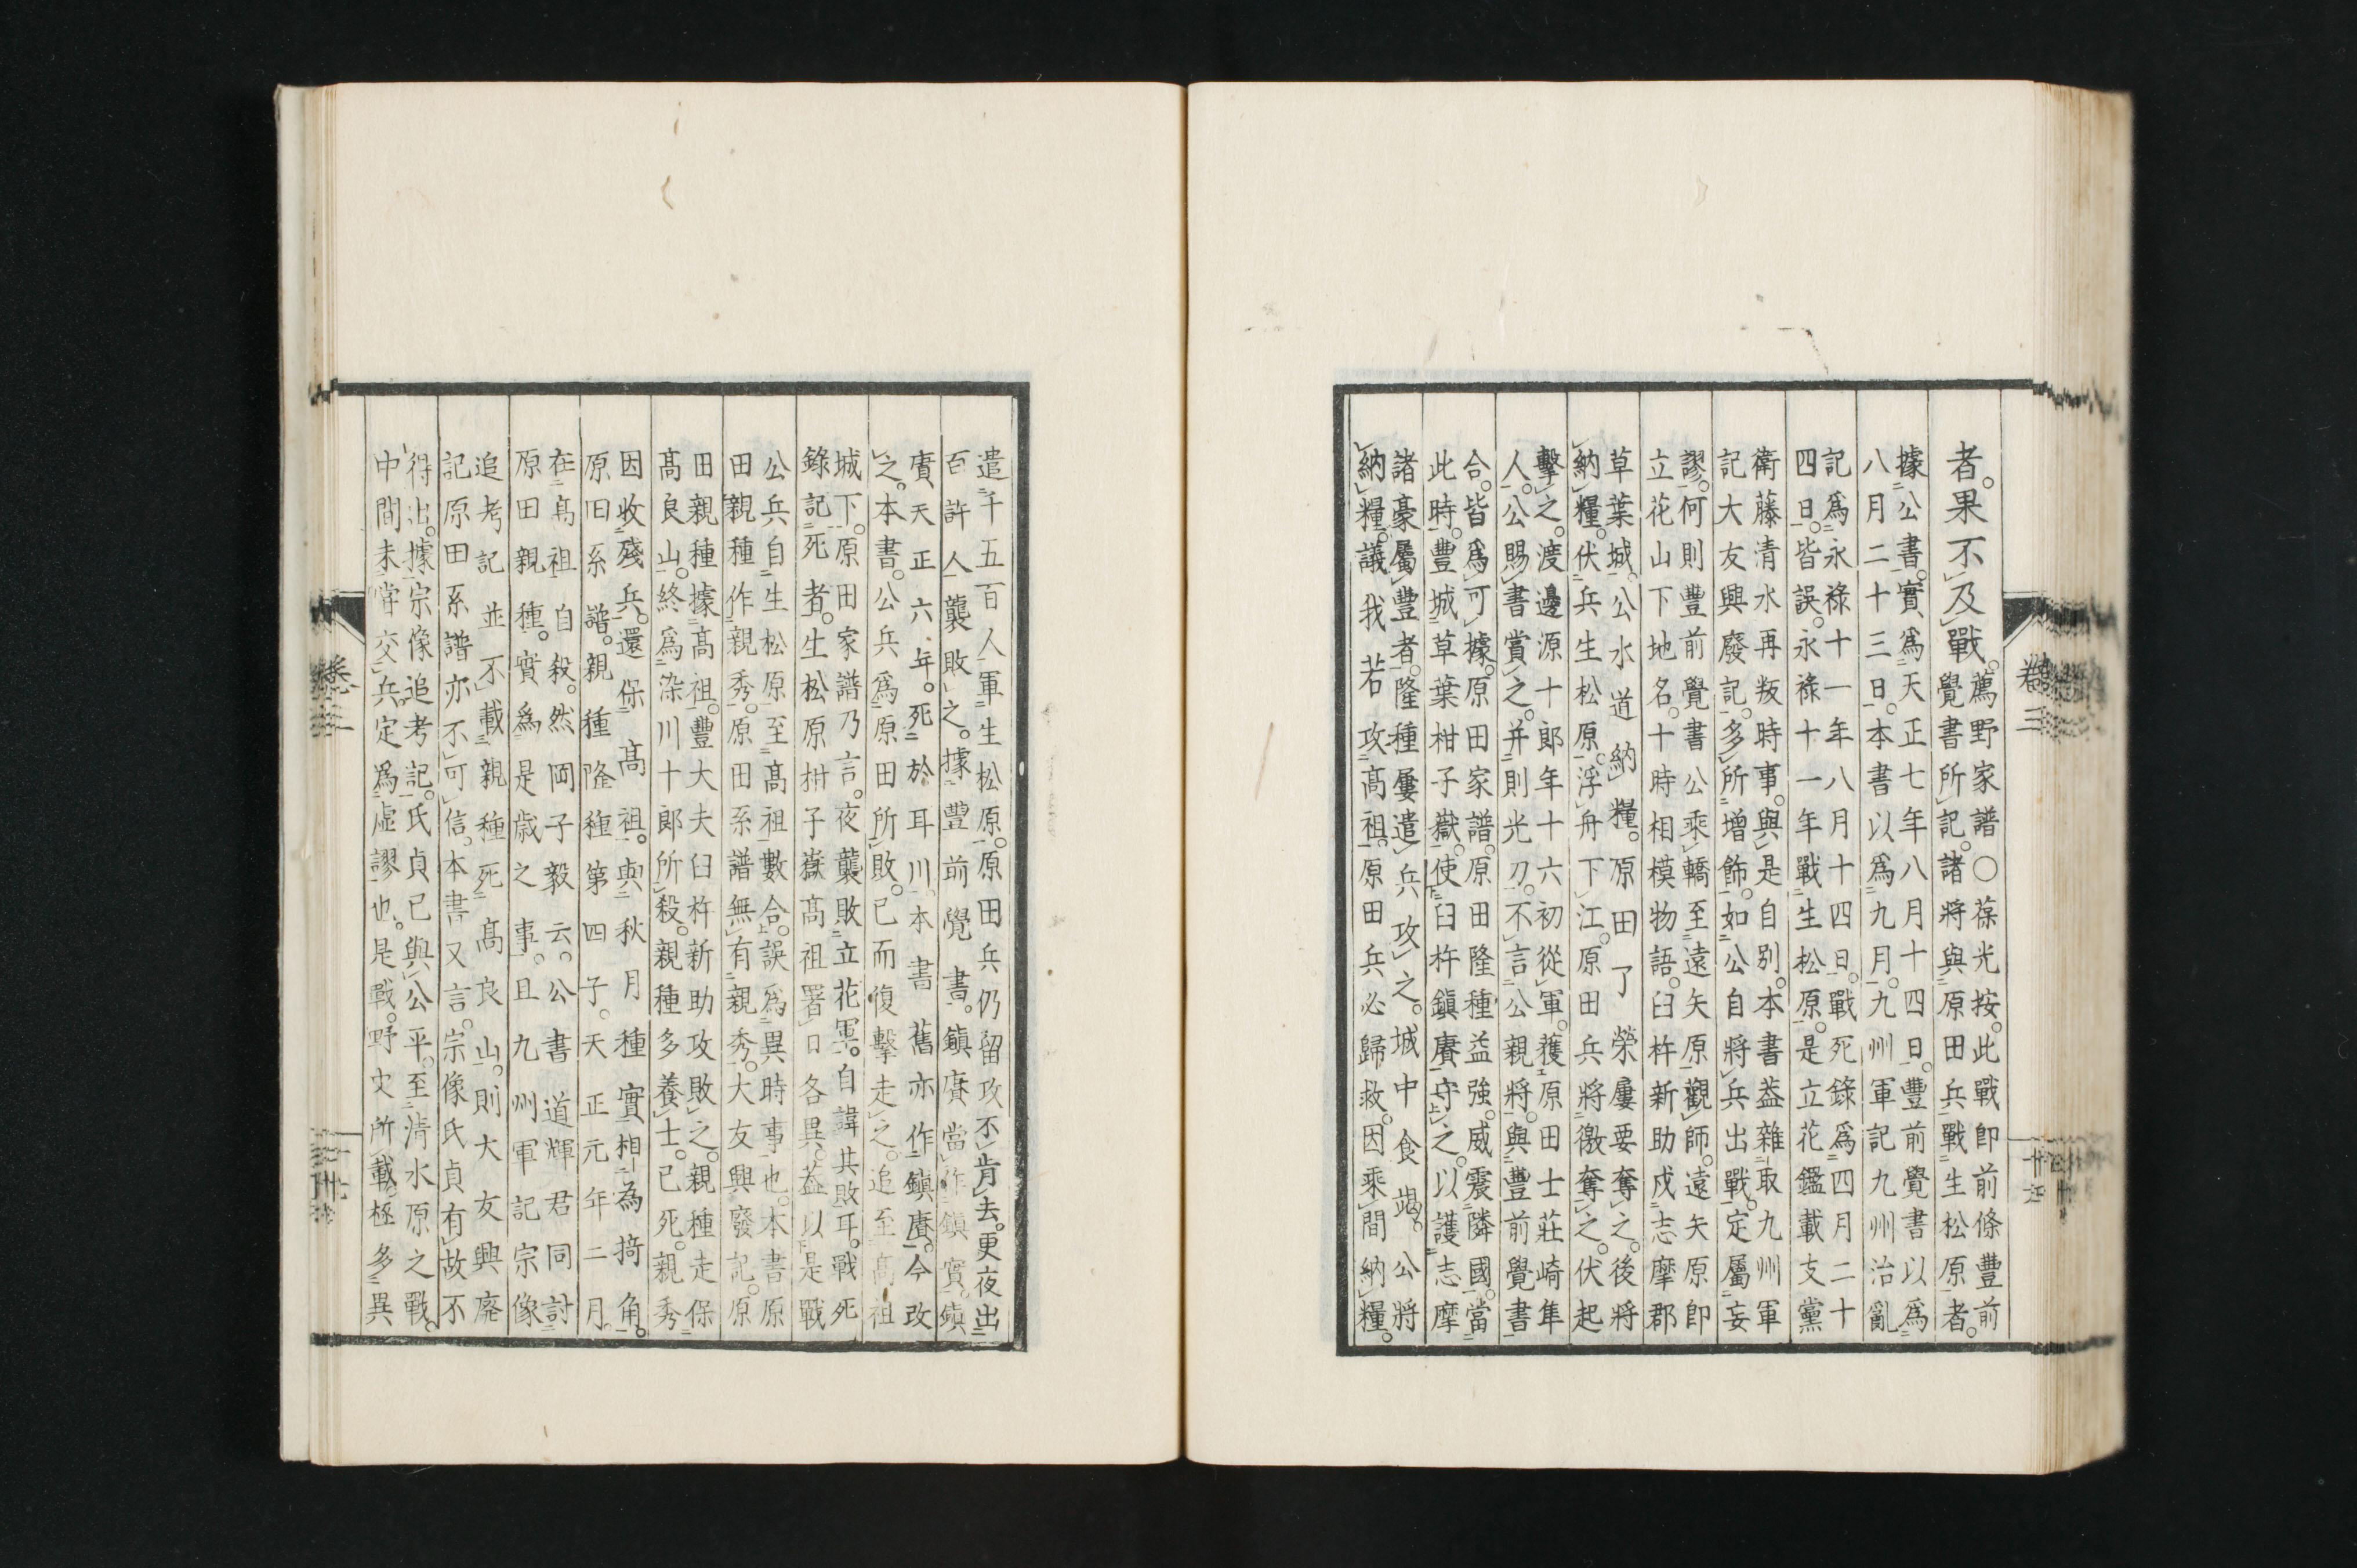 者。果不及戰。
薦野家譜○葆光按。此戰卽前條豊前
覺書所記。諸將與原田兵戰生松原者。
據公書。實爲天正七年八月十四日。豊前覺書以爲
八月二十三日。本書以爲九月。九州軍記九州治亂
記爲永祿十一年八月十四日。戰死錄爲四月二十
四日。皆誤。永祿十一年戰生松原。是立花鑑載支黨
衛藤清水再叛時事。與是自別。本書葢雜取九州軍
記大友興廢記。多所增飾。如公自將兵出戰。定屬妄
謬。何則豊前覺書公乘轎至遠矢原觀師。遠矢原卽
立花山下地名。十時相模物語。臼杵新助戍志摩郡
草葉城。公水道納糧。原田了榮屢要奪之。後將
納糧。伏兵生松原。浮舟下江。原田兵將徼奪之。伏起
擊之。渡邊源十郎年十六初從軍。獲原田士莊崎隼
人。公賜書賞之。幷則光刀。不言公親將。與豊前覺書
合。皆爲可據。原田家譜。原田隆種益強。威震隣國。當
此時。豊城草葉柑子嶽。使臼杵鎭賡守之。以護志摩
諸豪屬豊者。隆種屢遣兵攻之。城中食竭。公將
納糧。議我若攻高祖。原田兵必歸救。因乘間納糧。
卷三
遣千五百人軍生松原。原田兵仍留攻不肯去。更夜出
百許人襲敗之。據豊前覺書。鎭賡當作鎭實。鎭
賡天正六年。死於耳川。本書舊亦作鎭賡。今改
之。本書。公兵爲原田所敗。已而復擊走之。追至高祖
城下。原田家譜乃言。夜襲敗立花軍。自諱其敗耳。戰死
錄記死者。生松原柑子嶽高祖署口各異。葢以是戰
公兵自生松原至高祖數合。誤爲異時事也。本書原
田親種作親秀。原田系譜無有親秀。大友興廢記。原
田親種據高祖。豊大夫臼杵新助攻敗之。親種走保
高良山。終爲染川十郎所殺。親種多養士。已死。親秀
因收殘兵。還保高祖。與秋月種實相爲掎角。
原田系譜。親種隆種第四子。天正元年二月。
在高祖自殺。然岡子毅云。公書道輝君同討
原田親種。實爲是歲之事。且九州軍記宗像
追考記並不載親種死高良山。則大友興廢
記原田系譜亦不可信。本書又言。宗像氏貞有故不
得出。據宗像追考記。氏貞已與公平。至清水原之戰。
中間未嘗交兵。定爲虛謬也。是戰。野史所載極多異